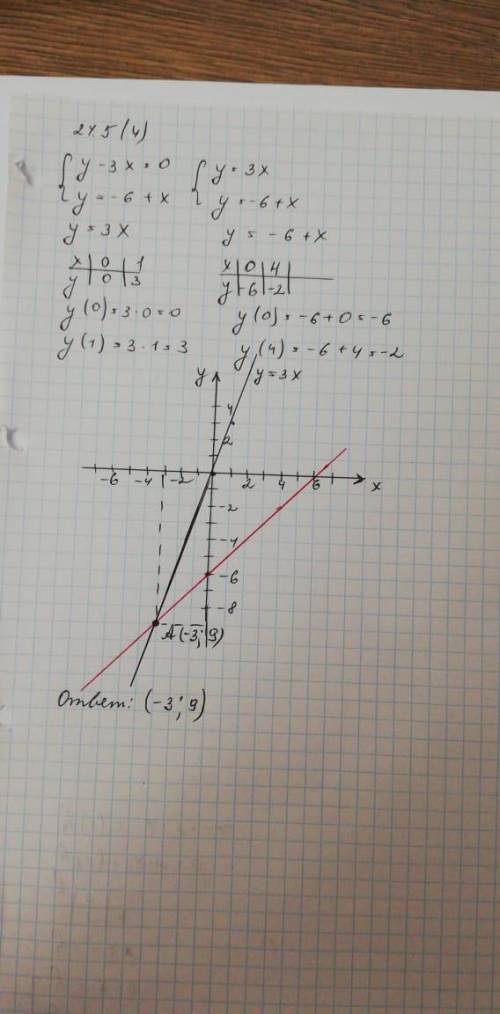 24.5(4)
{ y - 3x = 0 { y = 3x
{ y = -6 + x { y = -6 + x
y = 3x y = -6 + x
x | 0 | 1 x | 0 | 4 |
y | 0 | 3 y | -6 | -2 |
y(0) = 3·0 = 0 y(0) = -6 + 0 = -6
y(1) = 3·1 = 3 y(4) = -6 + 4 = -2
y y = 3x
4
2
-6 -4 -2 2 4 6 x
-2
-4
-6
-8
A(-3; 9)
Ответ: (-3; 9)